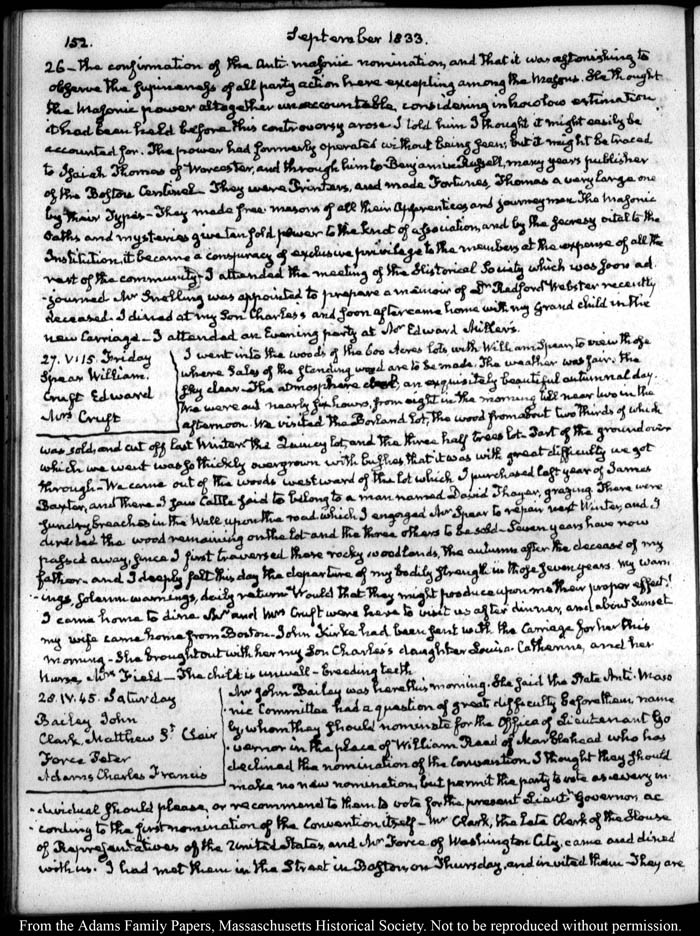 152.
September 1833.
26 – the confirmation of the Anti-masonic nomination, and that it was astonishing to
observe the supineness of all party action here excepting among the Masons. He thought
the Masonic power altogether unaccountable, considering in how low estimation
it had been held before this controversy arose. I told him I thought it might easily be
accounted for. The power had formerly operated without being seen; but it might be traced
to Isaiah Thomas of Worcester, and through him to Benjamin Russell, many years publisher
of the Boston Centinel. They were Printers, and made Fortunes, Thomas a very large one
by their Types – They made free masons of all their Apprentices and journeymen. The Masonic
Oaths and mysteries give tenfold power to the knot of association, and by the secresy vital to the
Institution, it became a conspiracy of exclusive privilege to the members at the expense of all the
rest of the community. I attended the meeting of the Historical Society which was soon ad
-journed Mr Snelling was appointed to prepare a memoir of Dr Redford Webster recently
deceased. I dined at my Son Charles's and soon after came home with my Grand child in the
new Carriage – I attended an Evening party at Mr Edward Miller's.
27. V:15. Friday
Spear William.
Cruft Edward
Mrs Cruft
I went into the woods of the 600 Acres lots with William Spear, to view those
where Sales of the standing wood are to be made. The weather was fair. the
sky clear – The atmosphere an exquisitely beautiful autumnal day.
We were out nearly six hours, from eight in the morning till near two in the
afternoon. We visited the Borland lot, the wood from about two thirds of which
was sold, and cut off last Winter the Quincy lot, and the three half trees lot. Part of the ground over
which we went was so thickly overgrown with bushes that it was with great difficulty we got
through – We came out of the woods westward of the lot which I purchased last year of James
Baxter, and there I saw Cattle said to belong to a man named David Thayer, grazing. There were
sundry breaches in the Wall upon the road which I engaged Mr Spear to repair next Winter, and I
directed the wood remaining on the lot and the three others to be sold – Seven years have now
passed away, since I first traversed these rocky woodlands, the autumn after the decease of my
father – and I deeply felt this day the departure of my bodily strength in those seven years. My warn
-ings, solemn warnings, daily return. Would that they might produce upon me their proper effect!
I came home to dine Mr and Mrs Cruft were here to visit us after dinner, and about Sunset
my wife came home from Boston – John Kirke had been sent with the Carriage for her this
morning – She brought out with her my Son Charles's daughter Louisa Catherine, and her
Nurse, Mrs Field – The child is unwell – breeding teeth
28. IV.45. Saturday
Bailey John
Clark, Matthew St Clair
Force Peter
Adams Charles Francis
Mr John Bailey was here this morning. He said the State Anti-Maso
nic Committee had a question of great difficulty before them, name
ly, whom they should nominate for the Office of Lieutenant Go
vernor in the place of William Read of Marblehead who has
declined the nomination of the Convention. I thought they should
make no new nomination, but permit the party to vote as every in
-dividual should please, or recommend to them to vote for the present Lieutt Governor ac
cording to the first nomination of the Convention itself – Mr Clark, the late Clerk of the House
of Representatives of the United States, and Mr Force of Washington City, came and dined
with us. I had met them in the Street in Boston on Thursday, and invited them – They are
From the Adams Family Papers, Massachusetts Historical Society. Not to be reproduced without permission.